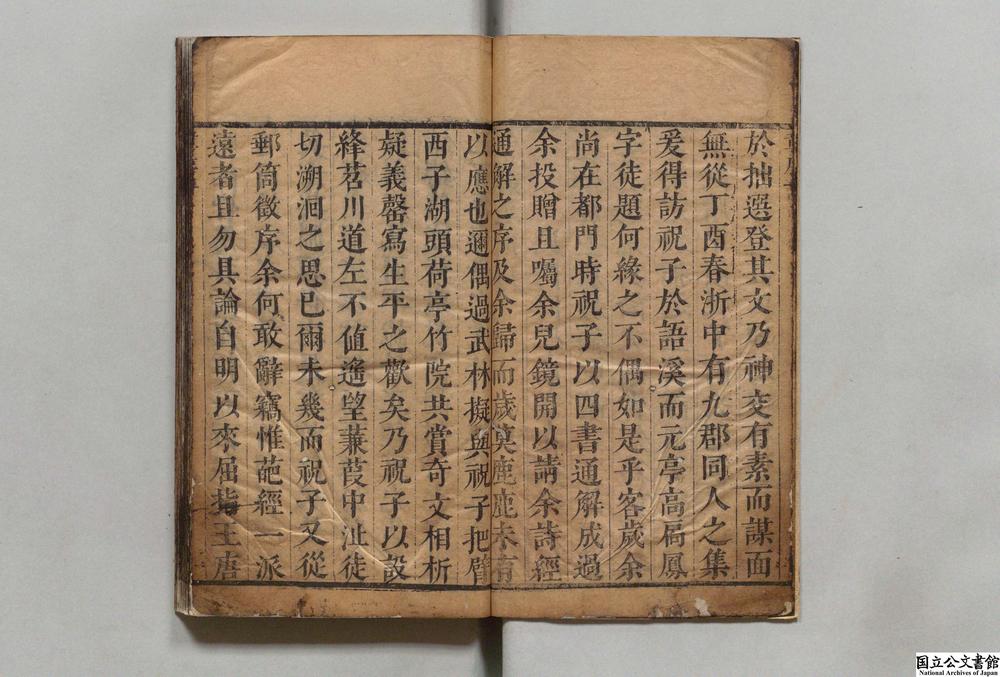 於拙選登其文乃神交有素而謀面
無從丁酉春浙中有九郡同人之集
爰得訪祝子於語溪而元亭高扃鳳
字徒題何緣之不偶如是乎客歲余
尚在都門時祝子以四書通解成過
余投贈且囑余兒鏡開以請余詩經
通解之序及余歸而歲莫鹿鹿未有
以應也邇偶過武林擬與祝子把臂
西子湖頭荷亭竹院共賞奇文相析
疑義罄寫生平之歡矣乃祝子以設
絳苕川道左不值遙望蒹葭中沚徒
切溯洄之思已爾未幾而祝子又從
郵筒徵序余何敢辭竊惟葩經一派
遠者且勿具論自明以來屈指王唐
国立公文書館
National Archives of Japan